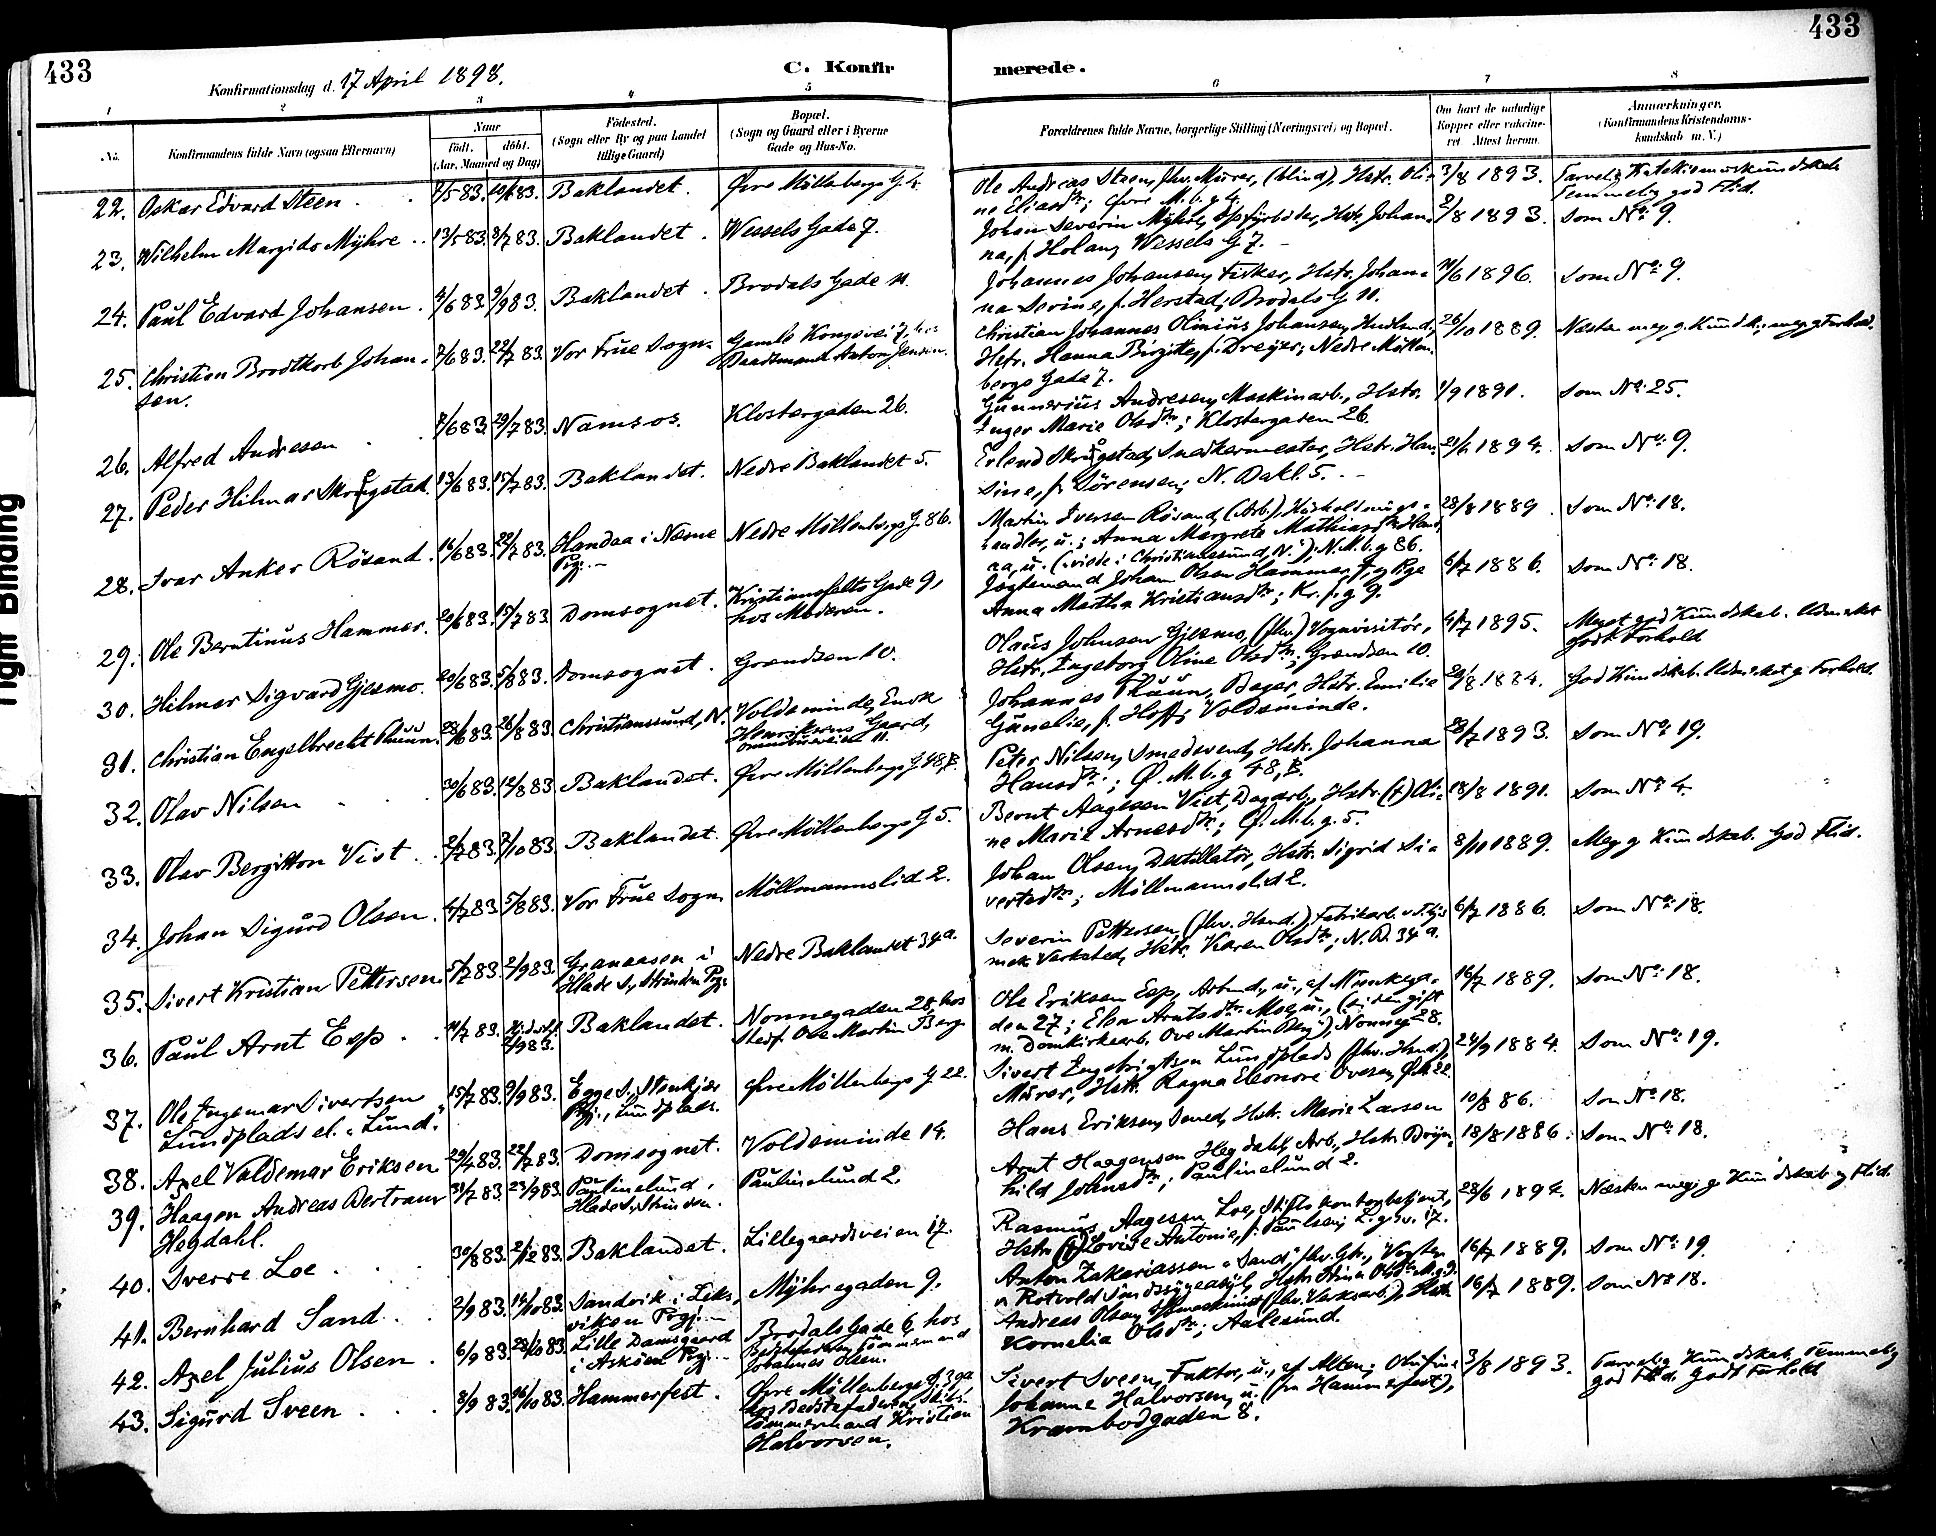 433
433
Konfirmationsdag d. 17 April 1898.
C. Konfirmerede.
1 2 3 4 5 6 7 8
No.
Konfirmandens fulde Navn (ogsaa Efternavn)
Naar
født. døbt.
(Aar, Maaned og Dag)
Fødested.
(Sogn eller By og paa Landet
tillige Gaard)
Bopæl.
(Sogn og Gaard eller i Byerne
Gade og Hus-No.
Forældrenes fulde Navne, borgerlige Stilling (Næringsvei) og Bopæl.
Om havt de naturlige
Kopper eller vaccine-
ret Attest herom.
Anmærkninger.
(Konfirmandens Kristendoms-
kundskab m. V.)
22. Oskar Edvard Steen 7/5 83. Baklandet. Øvre Møllebergs G. 4.
Ole Andreas Steen, fhv. Murer, (blind), Hstr. Oli-
ne Eliasdtr; 3/8 1893. Temmelig god Flid.
23. Wilhelm Margido Myhre 13/5 83. 8/7 83. Baklandet. Wessels Gade 7.
Johan Severin Myhre, Hstr. Johan-
na, f. Holan; Wessels G 7. 2/8 1893. som No: 9.
24. Paul Edvard Johansen 4/6 83. 9/9 83. Baklandet. Brodals Gade 11.
Johannes Johansen, Fisker, Hstr. Johan-
na Serine, f. Herstad; Brodals G 11. 11/6 1896. som No: 9.
25. Christian Brodtkorb Johan-
sen. 7/6 83. 22/7 83. Vor Frue Sogn. Gamle Kongevei 7, hos
Baadsmand Anton Jensen.
Christian Johannes Olinius Johansen,
Hstr. Hanna Birgitte, f. Dreyer; Nedre Møllen-
bergs Gade 7. 26/10 1889. Næsten meg. g. Kundsk.; meg. g. Forhold.
26. Alfred Andresen 7/6 83. 29/7 83. Namsos. Klostergaden 26.
Gunnerius Andresen, Maskinarb., Hstr.
Inger Marie Olsdtr; Klostergaden 26. 1/9 1891. som No: 25.
27. Peder Hilmar Skrugstad. 13/6 83. 15/7 83. Baklandet. Nedre Baklandet 5.
Erlend Skrugstad, Snedkermester, Hstr. Han-
sine, f. Sørensen; N. Bakl. 5. 21/1 1894. som No: 9.
28. Ivar Anker Røsand. 16/6 83. 22/7 83. Nedre Møllenbergs G. 86.
Martin Iversen Røsand, (Arb.),
handler, u.; Anna Margrete
(viede i Christianssund, N.); N. M. b. g 86. 28/8 1889. som No: 18.
29. Ole Berntinus Hammer. 20/6 83. 15/7 83. Domsognet. Kristiansfelts Gade 9,
hos Moderen.
Jægtemand Johan Olsen Hammer,
Anna Martha Kristiansdtr; Kr. f. g 9. 6/7 1886. som No: 18.
30. Hilmar Sigvard Gjesmo. 20/6 83. 5/8 83. Domsognet. Grændsen 10.
Olaus Johnsen Gjesmo, (fhv.) Vognvisitør,
Hstr. Ingeborg Oline Olsdtr; Grændsen 10. 4/7 1895. Meget god Kundskab. Udmærket
godt Forhold
31. Christian Engelbrecht Thuun. 28/6 83. 26/8 83. Christianssund, N. Voldsminde, Enok
Henriksens Gaard,
Johannes Thuun, Bager, Hstr. Emilie
Gunelie, f. Hoff; Voldsminde. 29/8 1884. God Kundskab. Udmærket g. Forhold.
32. Olav Nilsen 30/6 83. 12/8 83. Baklandet. Øvre Møllenbergs G. 48, B.
Peter Nilsen, Smedsvend, Hstr. Johanna
Hansdtr; Ø. M. b. g 48, B. 29/7 1893. som No: 19.
33. Olav Bergitton Vist 2/7 83. 7/10 83. Baklandet. Øvre Møllenbergs G 5.
Bernt Aagesen Vist, Dagarb., Hstr. (†) Oli-
ne Marie Arnesdtr; Ø. M. b. g. 5. 18/8 1891. som No: 4.
34. Johan Sigurd Olsen. 4/7 83. 5/8 83. Vor Frue Sogn. Møllmannslid 2.
Johan Olsen, Destillatør, Hstr. Sigrid Si-
vertsdtr; Møllmannslid 2. 8/10 1889. Meg. g. Kundskab. God Flid.
35. Sivert Kristian Pettersen 5/7 83. 2/9 83. Granaasen i
Hlade S., Strinden Pgj. Nedre Baklandet 34a.
Severin Pettersen, (fhv. Hand.) Fabrikarb.
mek. Værksted, Hstr. Karen Olsdtr; N. B. 34a. 6/7 1886. som No: 18.
36. Paul Arnt Esp 11/7 83. 2/9 83. Baklandet. Nonnegaden 28, hos
Stedf. Ove Martin Berg.
Ole Eriksen Esp, u., af Munkega-
den 27; Elen Arntsdtr Moe, u., (siden gift
m. Domkirkearb. Ove Martin Berg), Nonneg 28. 16/7 1889. som No: 18.
37. Ole Ingemar Sivertsen
Lundplads el. "Lund". 15/7 83. 9/9 83. Egge S., Stenkjær
Pgj., Lundplads. Øvre Møllenbergs G 22.
Sivert Engebrigtsen Lundplads (fhv. Hand.),
Murer, Hstr. Ragna Eleonore Ovesen, 24/9 1884. som No: 19.
38. Axel Valdemar Eriksen 29/4 83. 22/7 83. Domsognet. Voldsminde 14.
Hans Eriksen, Smed, Hstr. Marie Larsen 10/8 86. som No: 18.
39. Haagen Andreas Bertram
Hegdahl. 31/7 83. 23/9 83. Paulinelund,
Hlade S., Strinden. Paulinelund 2.
Arnt Haagensen Hegdahl, Arb., Hstr. Bryn-
hild Johnsdtr; Paulinelund 2. 18/8 1886. som No: 18.
40. Sverre Loe 30/8 83. 2/12 83. Baklandet. Lillegaardsveien 17.
Rasmus Aagesen Loe, Stiftskontorbetjent,
Hstr. (†) Lovise Antonie, f. Paulsen; L. g. sv. 17. 28/6 1894. Næsten meg. g. Kundskab. g. Flid.
41. Bernhard Sand 2/9 83. 14/10 83. Sandvik i Leks-
viken Pgj. Myhregaden 9.
Anton Zakariassen "Sand",
Rotvold Sindssygeasyl, Hstr. 16/7 1889. som No: 19.
42. Axel Julius Olsen 6/9 83. 28/10 83. Lille Damsgaard
i Askøen Pgj. Brodals Gade 6, hos
Bedstefaderen, Tømmermand
Johannes Olsen.
Andreas Olsen,
Kornelia Olsdtr; Aalesund. 16/7 1889. som No: 18.
43. Sigurd Sveen 8/9 83. 16/10 83. Hammerfest. Øvre Møllenbergs G. 39a
hos Bedstefaderen, Skibs-
tømmermand Kristian
Halvorsen.
Sivert Sveen, Faktor, u., af Alten;
Johanne Halvorsen, u. (fra Hammerfest),
Krambodgaden 8. 3/8 1893. Tarvelig Kundskab. Temmelig
god Flid. Godt Forhold
Tight Binding